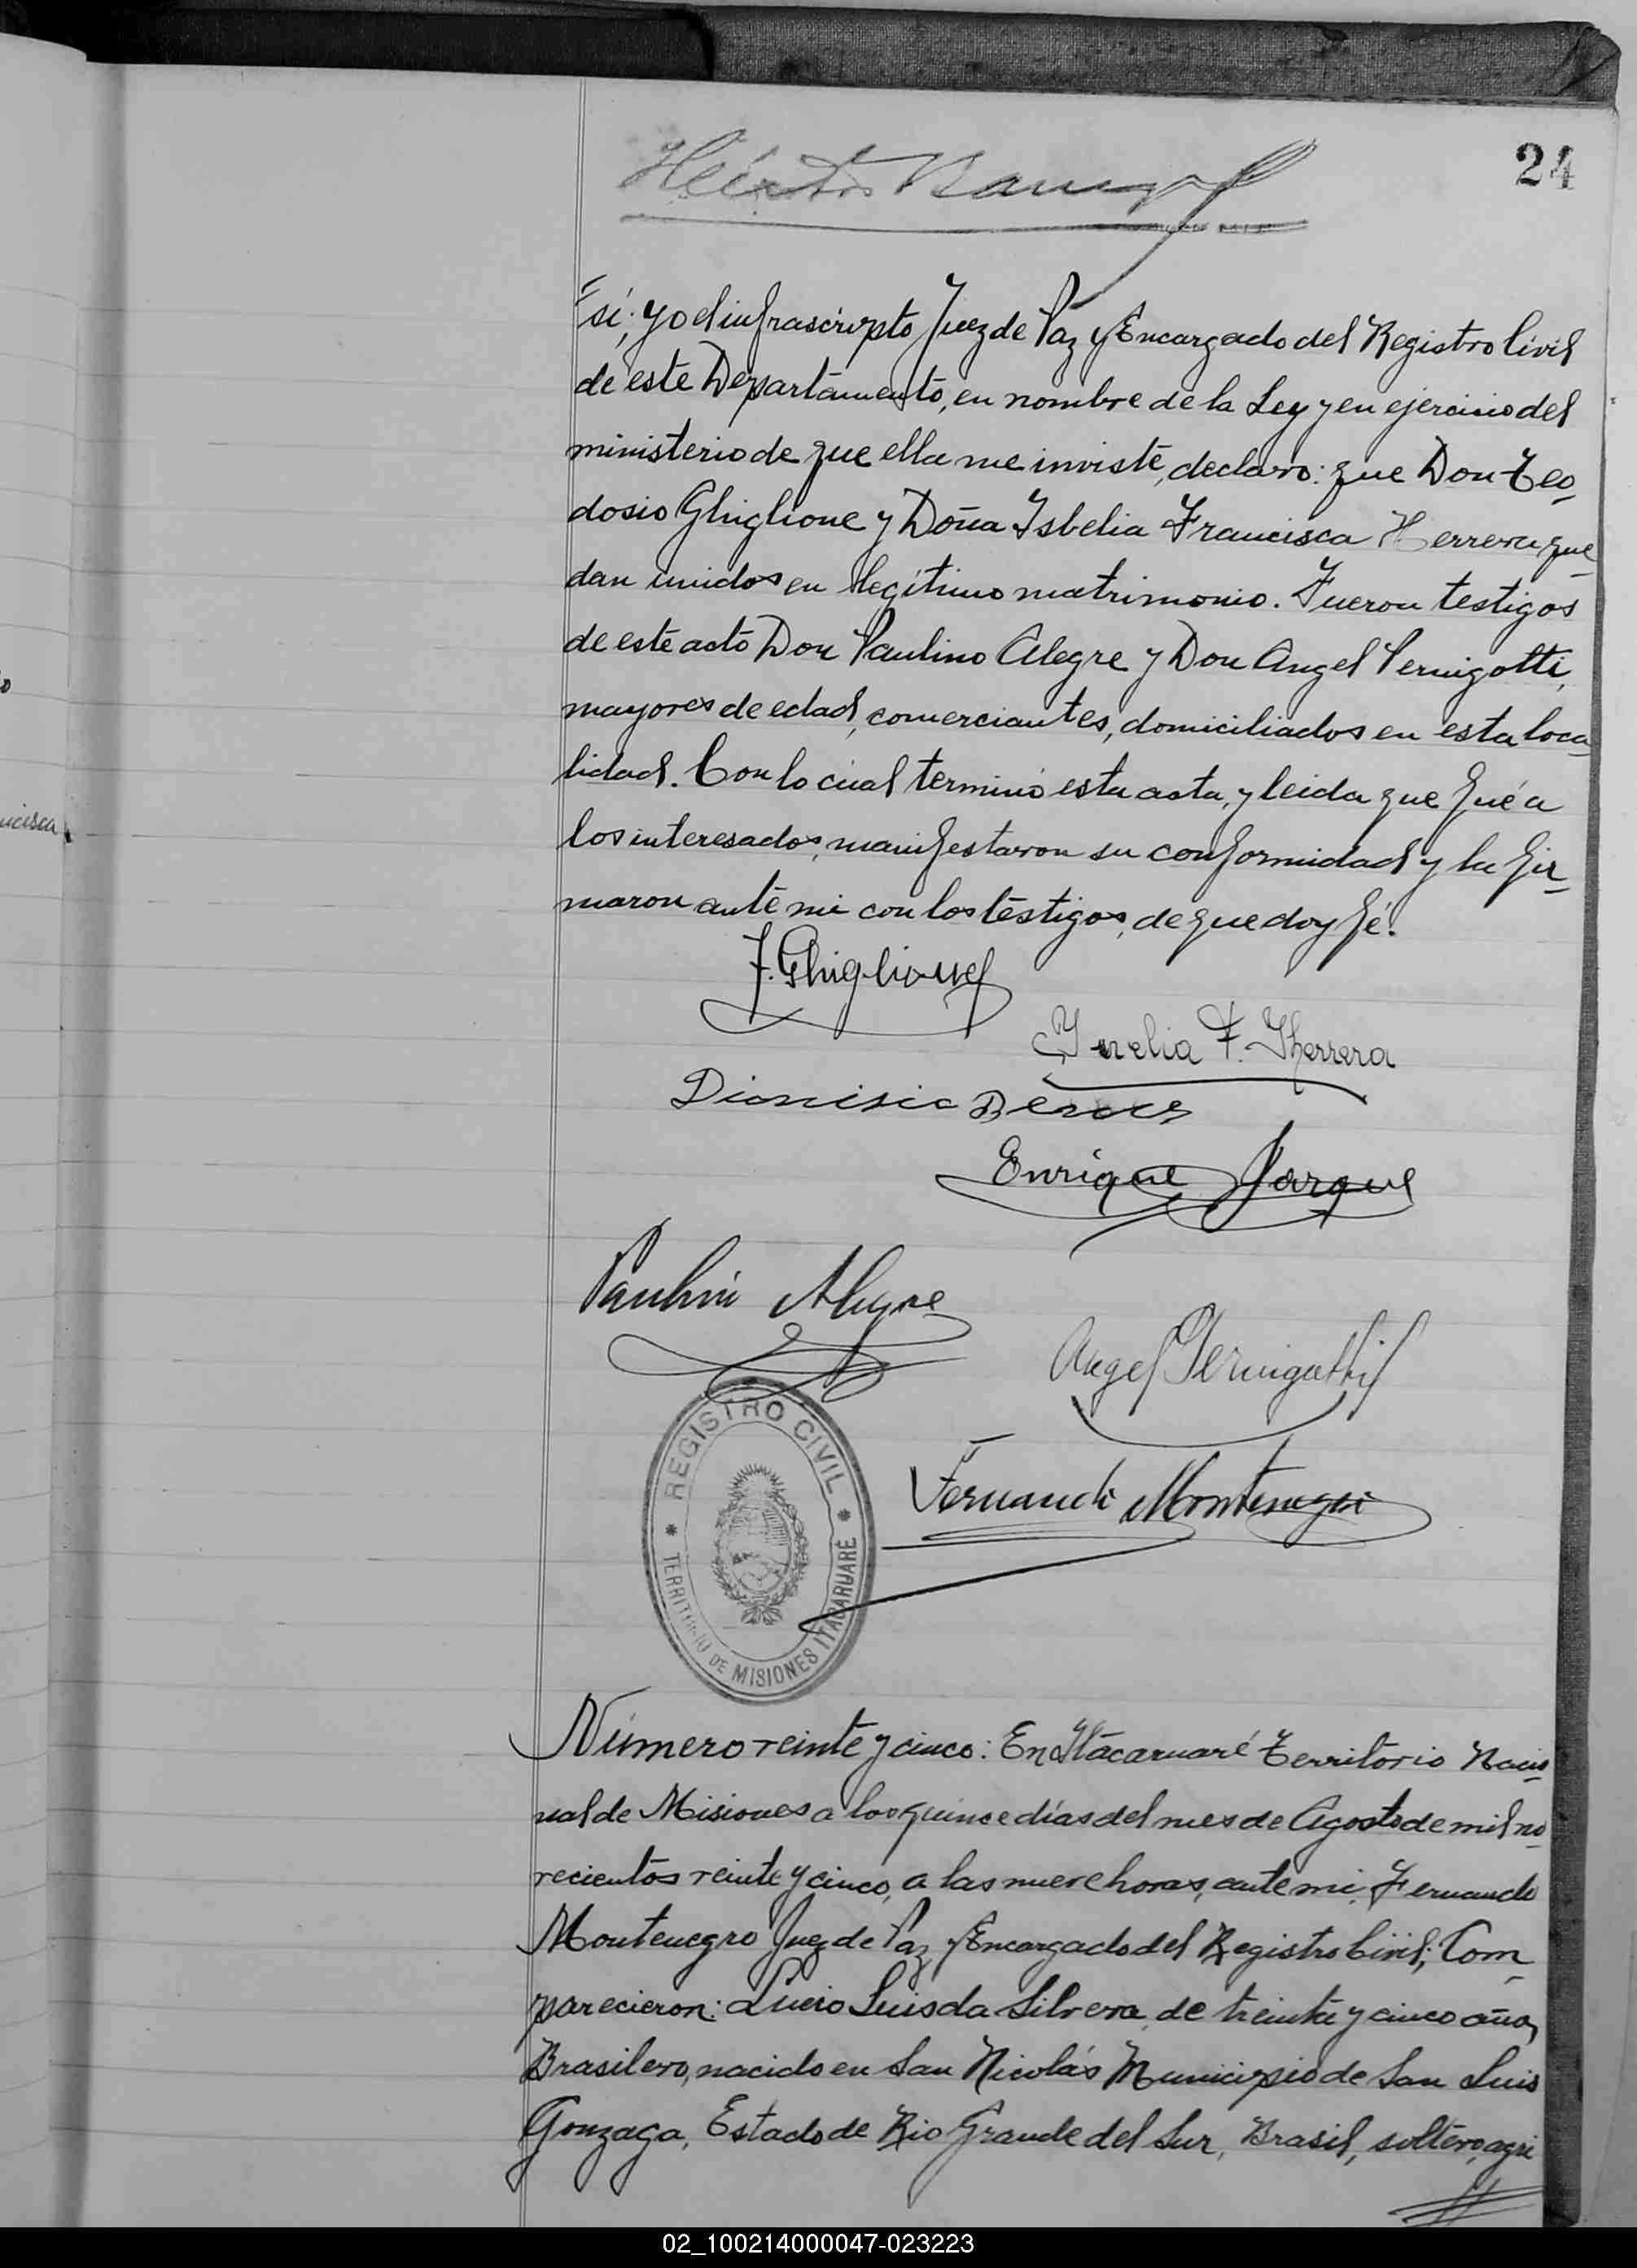 24
Héctor
"sí"; yo el infrascripto Juez de Paz y Encargado del Registro Civil
de este Departamento, en nombre de la Ley y en ejercicio del
ministerio de que ella me inviste, declaro: que Don Teo-
dosio Ghiglione y Doña Isbelia Francisca Herrera que-
dan unidos en legítimo matrimonio. Fueron testigos
de este acto Don Paulino Alegre y Don Angel Pernigotti,
mayores de edad, comerciantes, domiciliados en esta loca-
lidad. Con lo cual terminó esta acta, y leida que fué a
los interesados, manifestaron su conformidad y la fir-
maron ante mi con los testigos, de que doy fé.
T. Ghiglione
F. Herrera
Dionisio
Enrique
Paulino Alegre
Angel Pernigotti
Fernando Montenegro
REGISTRO CIVIL
TERRITORIO DE MISIONES ITACARUARÉ
Número veinte y cinco: En Itacaruaré Territorio Nacio-
nal de Misiones a los quince días del mes de Agosto de mil no-
vecientos veinte y cinco, a las nueve horas, ante mi, Fernando
Montenegro Juez de Paz y Encargado del Registro Civil; Com-
parecieron: Lucio Luis da Silvera, de treinta y cinco años,
Brasilero, nacido en San Nicolás Municipio de San Luis
Gonzaga, Estado de Rio Grande del Sur, Brasil, soltero, agri
02_100214000047-023223